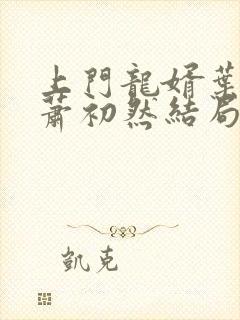 上門龍婿葉
蕭初然結局
凱克